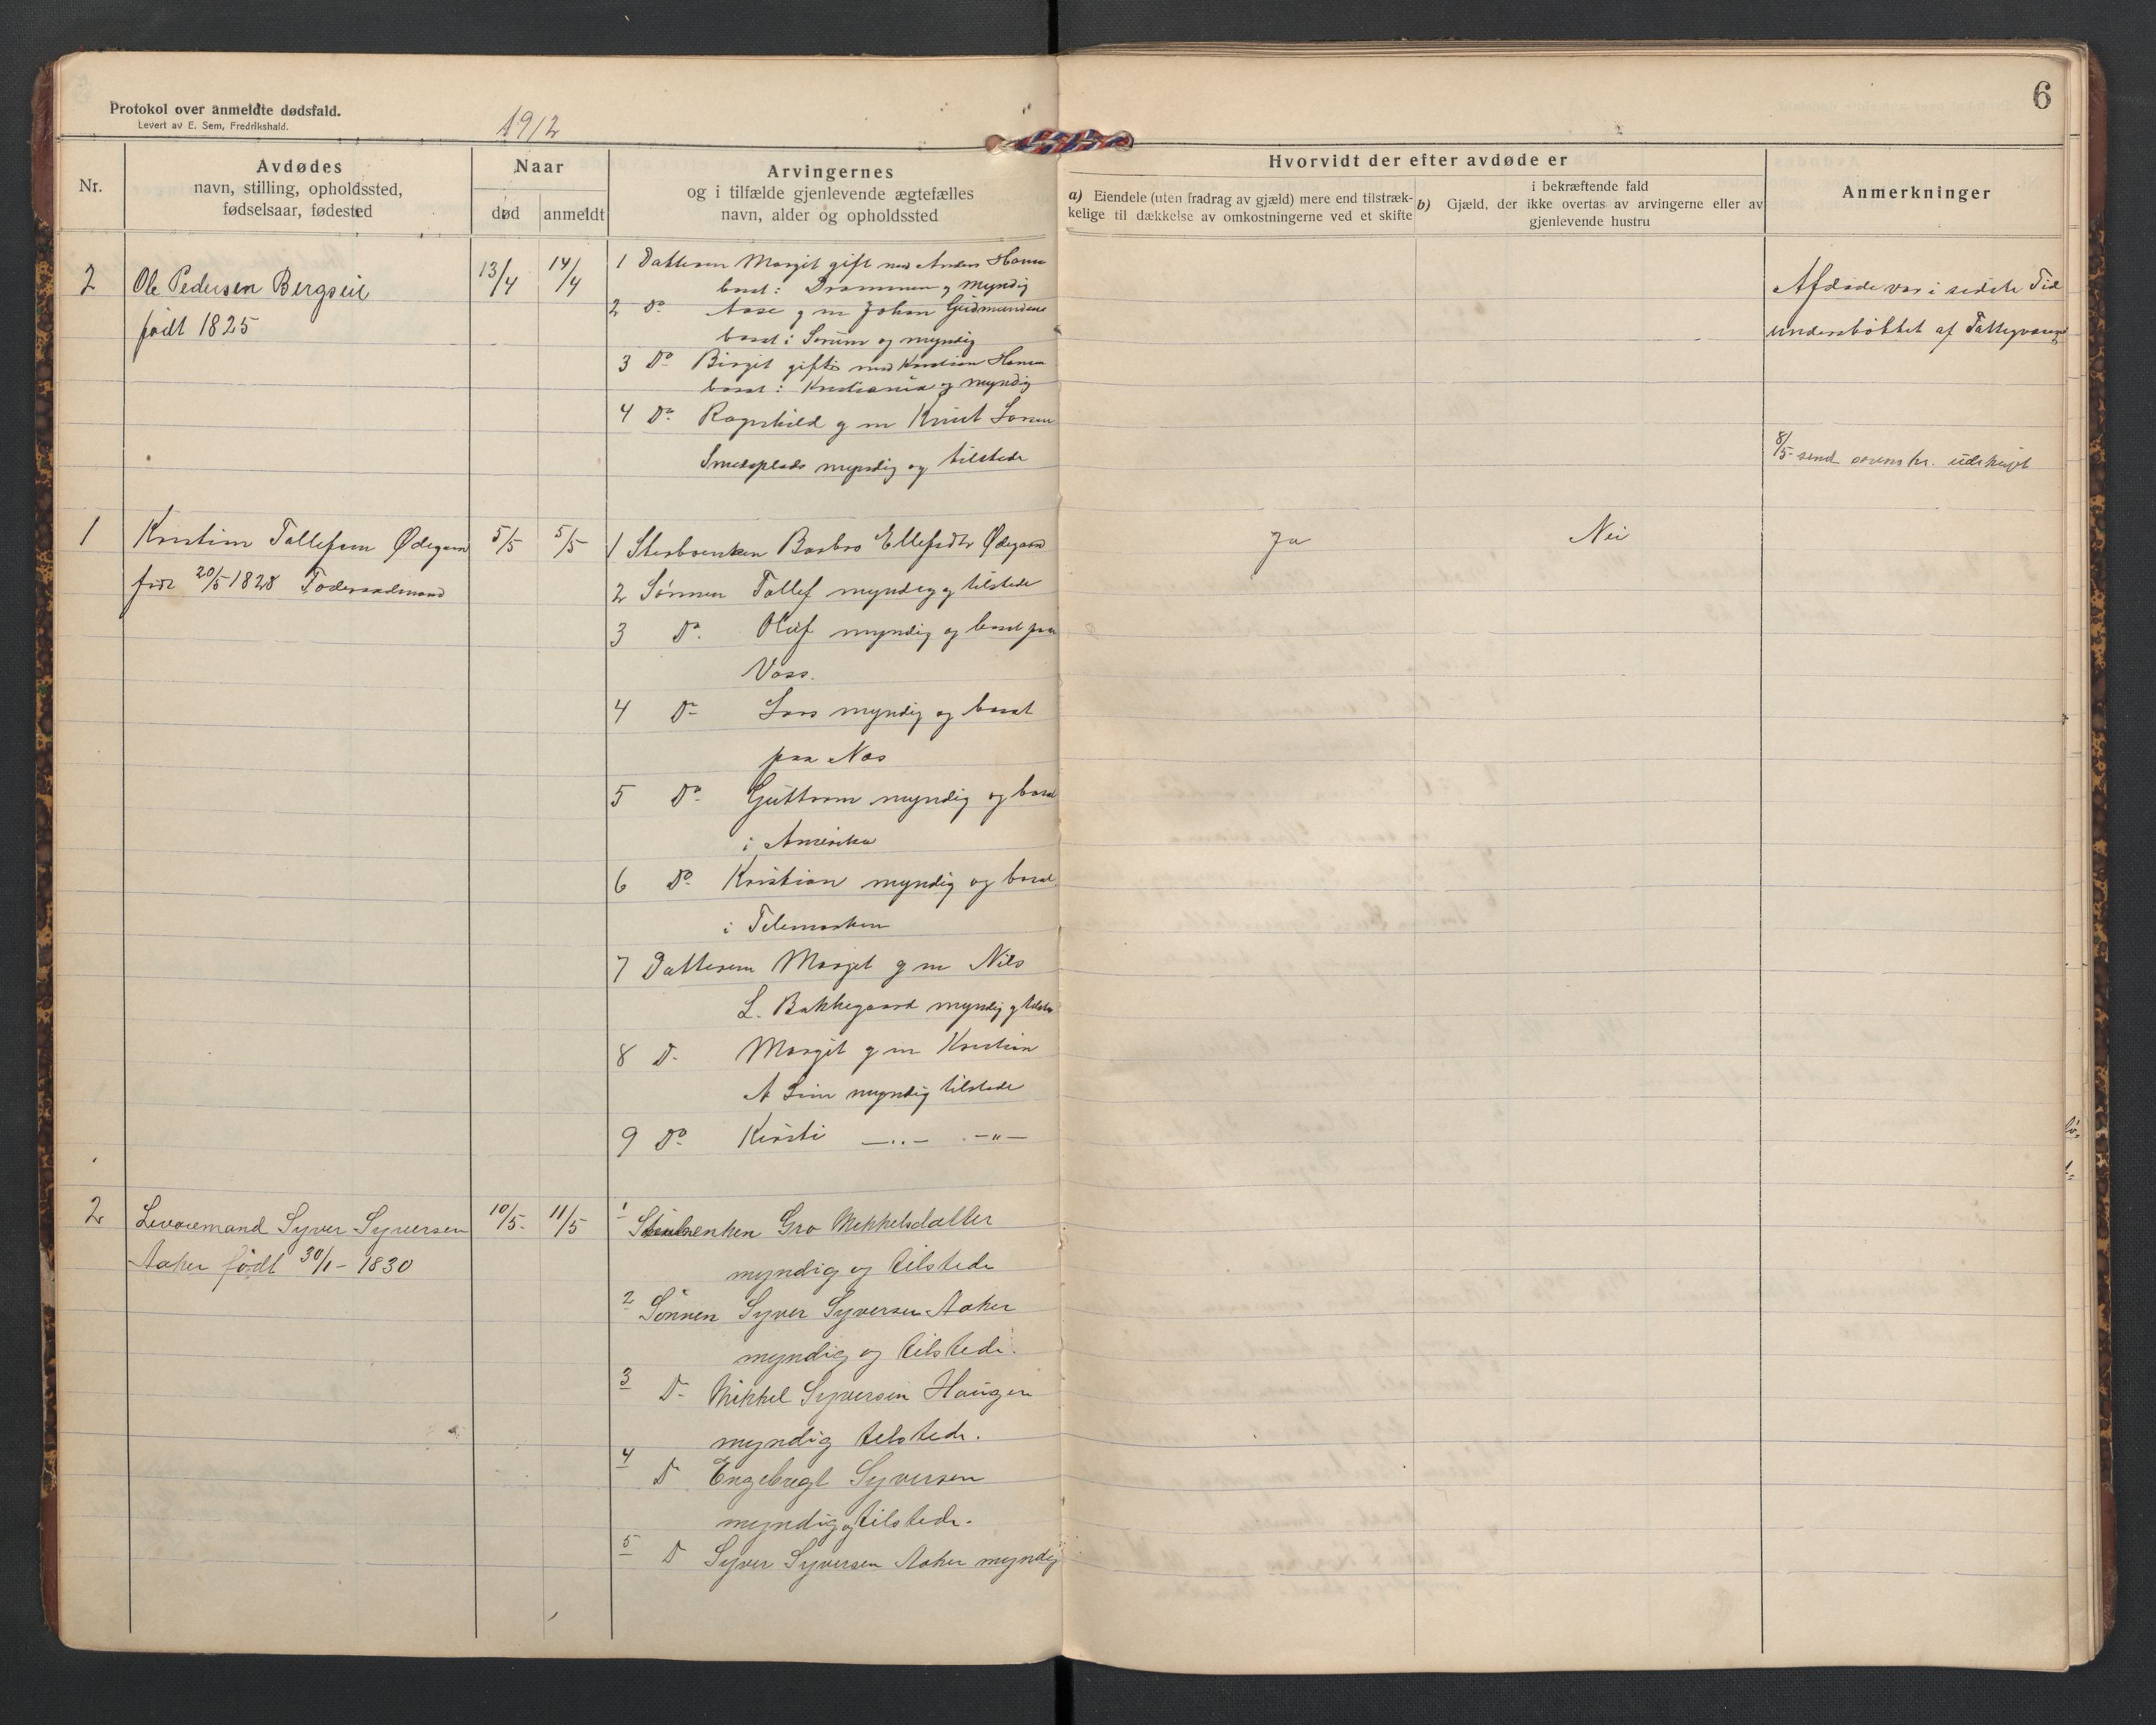 Protokol over anmeldte dødsfald.
Levert av E. Sem, Fredrikshald.
1912
6
Nr.
Avdødes
navn, stilling, opholdssted,
fødselsaar, fødested
Naar
død
anmeldt
Arvingernes
og i tilfælde gjenlevende ægtefælles
navn, alder og opholdssted
Hvorvidt der efter avdøde er
a) Eiendele (uten fradrag av gjæld) mere end tilstræk-
kelige til dækkelse av omkostningerne ved et skifte
i bekræftende fald
b) Gjæld, der ikke overtas av arvingerne eller av
gjenlevende hustru
Anmerkninger
2
Ole Pedersen Bergseie
født 1825
13/4
14/4
1 Datteren Margit gift med Anders Hansen
bosat i Drammen og myndig
2 Do Aase g m Johan Gudmundsen
bosat i Sørum og myndig
3 Do Birgit gift med Kristian Hansen
bosat i Kristiania og myndig
4 Do Ragnhild g m Knut Larsen
Smedsplads myndig og tilstede
Afdøde var i sidste Tid
understøttet af Fattigvæsenet
8/5 send sorenskr. udskrift
1
Kristian Tollefsen Ødegaard
født 20/5 1828 Føderaadsmand
5/5
5/5
1 Sterboenken Barbro Ellefsdtr Ødegaard
2 Sønnen Tollef myndig og tilstede
3 Do. Oluf myndig og bosat paa
Voss.
4 Do Lars myndig og bosat
paa Næs
5 Do Guttorm myndig og bosat
i Amerika
6 Do Kristian myndig og bosat
i Telemarken
7 Datteren Margit g m Nils
L. Bakkegaard myndig og tilstede
8 D. Margit g m Kristian
A myndig tilstede
9 Do Kirsti —..— .—"—
Ja
Nei
2
Levoremand Syver Syversen
Aaker født 30/1 - 1830
10/5.
11/5
1 Sterboenken Gro Mikkelsdatter
myndig og tilstede
2 Sønnen Syver Syversen Aaker
myndig og tilstede.
3 D. Mikkel Syversen Haugen
myndig tilstede.
4 D Engebregt Syversen
myndig og tilstede.
5 D Syver Syversen Aaker myndig